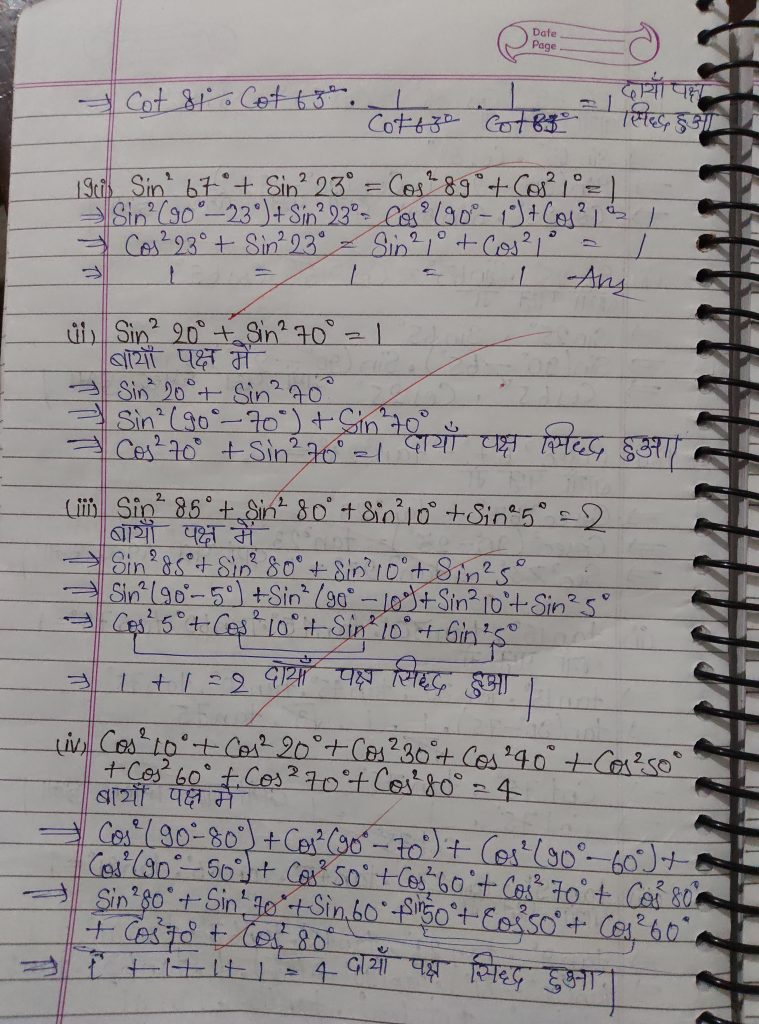 Date
Page
⇒ Cot 81° · Cot 63° · 1/Cot 63° · 1/Cot 81° = 1 दायाँ पक्ष
सिध्द हुआ
19(i) Sin² 67° + Sin² 23° = Cos² 89° + Cos² 1° = 1
⇒ Sin²(90° − 23°) + Sin² 23° = Cos²(90° − 1°) + Cos² 1° = 1
⇒ Cos² 23° + Sin² 23° = Sin² 1° + Cos² 1° = 1
⇒ 1 = 1 = 1 Ans
(ii) Sin² 20° + Sin² 70° = 1
बायाँ पक्ष में
⇒ Sin² 20° + Sin² 70°
⇒ Sin² (90° − 70°) + Sin² 70°
⇒ Cos² 70° + Sin² 70° = 1 दायाँ पक्ष सिध्द हुआ|
(iii) Sin² 85° + Sin² 80° + Sin² 10° + Sin² 5° = 2
बायाँ पक्ष में
⇒ Sin² 85° + Sin² 80° + Sin² 10° + Sin² 5°
⇒ Sin²(90 − 5°) + Sin² (90° − 10°) + Sin² 10° + Sin² 5°
⇒ Cos² 5° + Cos² 10° + Sin² 10° + Sin² 5°
⇒ 1 + 1 = 2 दायाँ पक्ष सिध्द हुआ|
(iv) Cos² 10° + Cos² 20° + Cos² 30° + Cos² 40° + Cos² 50°
+ Cos² 60° + Cos² 70° + Cos² 80° = 4
बायाँ पक्ष में
⇒ Cos² (90° − 80°) + Cos² (90° − 70°) + Cos² (90° − 60°) +
Cos² (90° − 50°) + Cos² 50° + Cos² 60° + Cos² 70° + Cos² 80°
⇒ Sin² 80° + Sin² 70° + Sin 60° + Sin² 50° + Cos² 50° + Cos² 60°
+ Cos² 70° + Cos² 80°
⇒ 1 + 1 + 1 + 1 = 4 दायाँ पक्ष सिध्द हुआ|